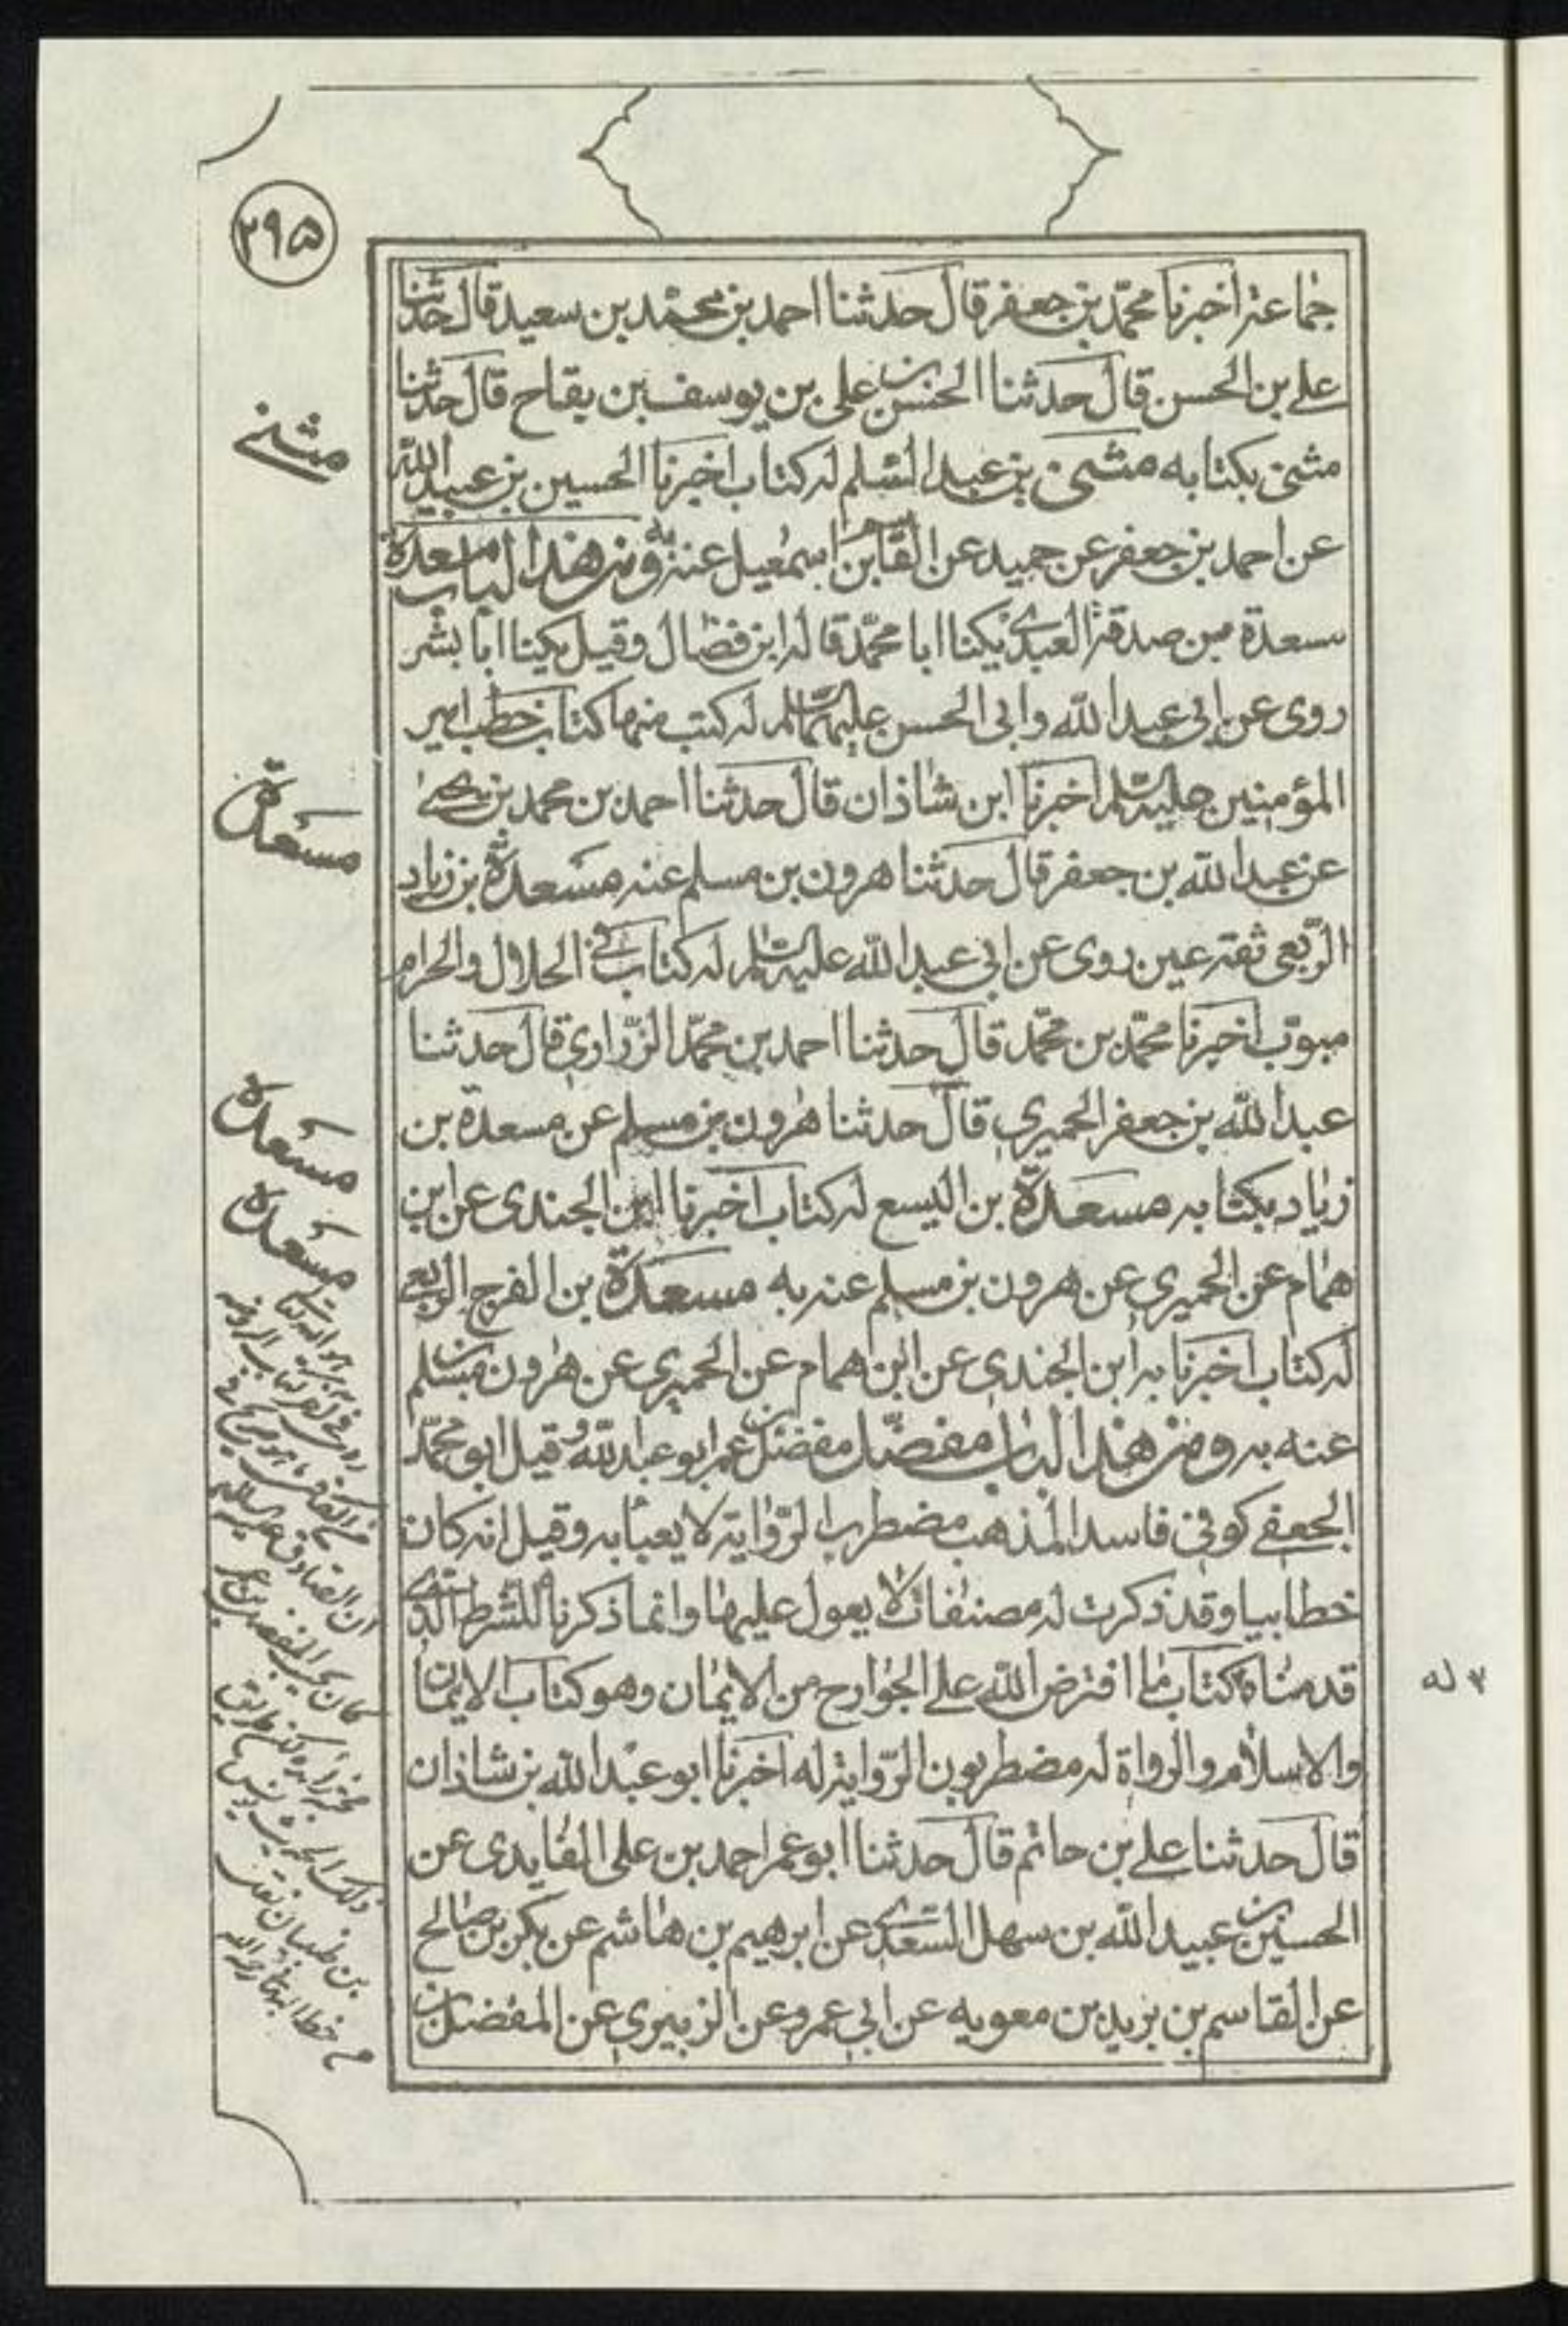 ٢٩٥
جماعة اخبرنا محمّد بن جعفر قال حدثنا احمد بن محمّد بن سعيد قال حدّثنا
على بن الحسن قال حدثنا الحسن بن على بن يوسف بن بقاح قال حدثنا
مثنى بكتابه مثنى بن عبد السّلم له كتاب اخبرنا الحسين بن عبيد اللّه
عن احمد بن جعفر عن حميد عن القاسم بن اسمعيل عنه به ومن هذا الباب مسعدة
مسعدة بن صدقة العبدى يكنا ابا محمّد قاله ابن فضال وقيل يكنا ابا بشر
روى عن ابى عبد اللّه وابى الحسن عليهما السّلم له كتب منها كتاب خطب امير
المؤمنين عليه السّلم اخبرنا ابن شاذان قال حدثنا احمد بن محمد بن يحيى
عن عبد اللّه بن جعفر قال حدثنا هرون بن مسلم عنه مسعدة بن زياد
الرّبعى ثقة عين روى عن ابى عبد اللّه عليه السّلم له كتاب فى الحلال والحرام
مبوّب اخبرنا محمّد بن محمّد قال حدثنا احمد بن محمّد الزّرارى قال حدثنا
عبد اللّه بن جعفر الحميرى قال حدثنا هرون بن مسلم عن مسعدة بن
زياد بكتابه مسعدة بن اليسع له كتاب اخبرنا ابن الجندى عن ابن
همام عن الحميرى عن هرون بن مسلم عنه به مسعدة بن الفرج الربعى
له كتاب اخبرنا به ابن الجندى عن ابن همام عن الحميرى عن هرون بن مسلم
عنه به ومن هذا الباب مفضّل مفضل بن عمر ابو عبد اللّه وقيل ابو محمّد
الجعفى كوفى فاسد المذهب مضطرب الرّواية لا يعبأ به وقيل انه كان
خطابيا وقد ذكرت له مصنفات لا يعول عليها وانما ذكرنا للشرط الّذى
قدمناه كتاب ما افترض اللّه على الجوارح من الايمان وهو كتاب الايمان
والاسلام والرواة له مضطربون الرّواية له اخبرنا ابو عبد اللّه بن شاذان
قال حدثنا على بن حاتم قال حدثنا ابو عمر احمد بن على الفايدى عن
الحسين بن عبيد اللّه بن سهل السّعدى عن ابرهيم بن هاشم عن بكر بن صالح
عن القاسم بن بريد بن معويه عن ابى عمرو عن الزبيرى عن المفضل بن
مثنى
مسعدة
مسعدة
مسعدة
له